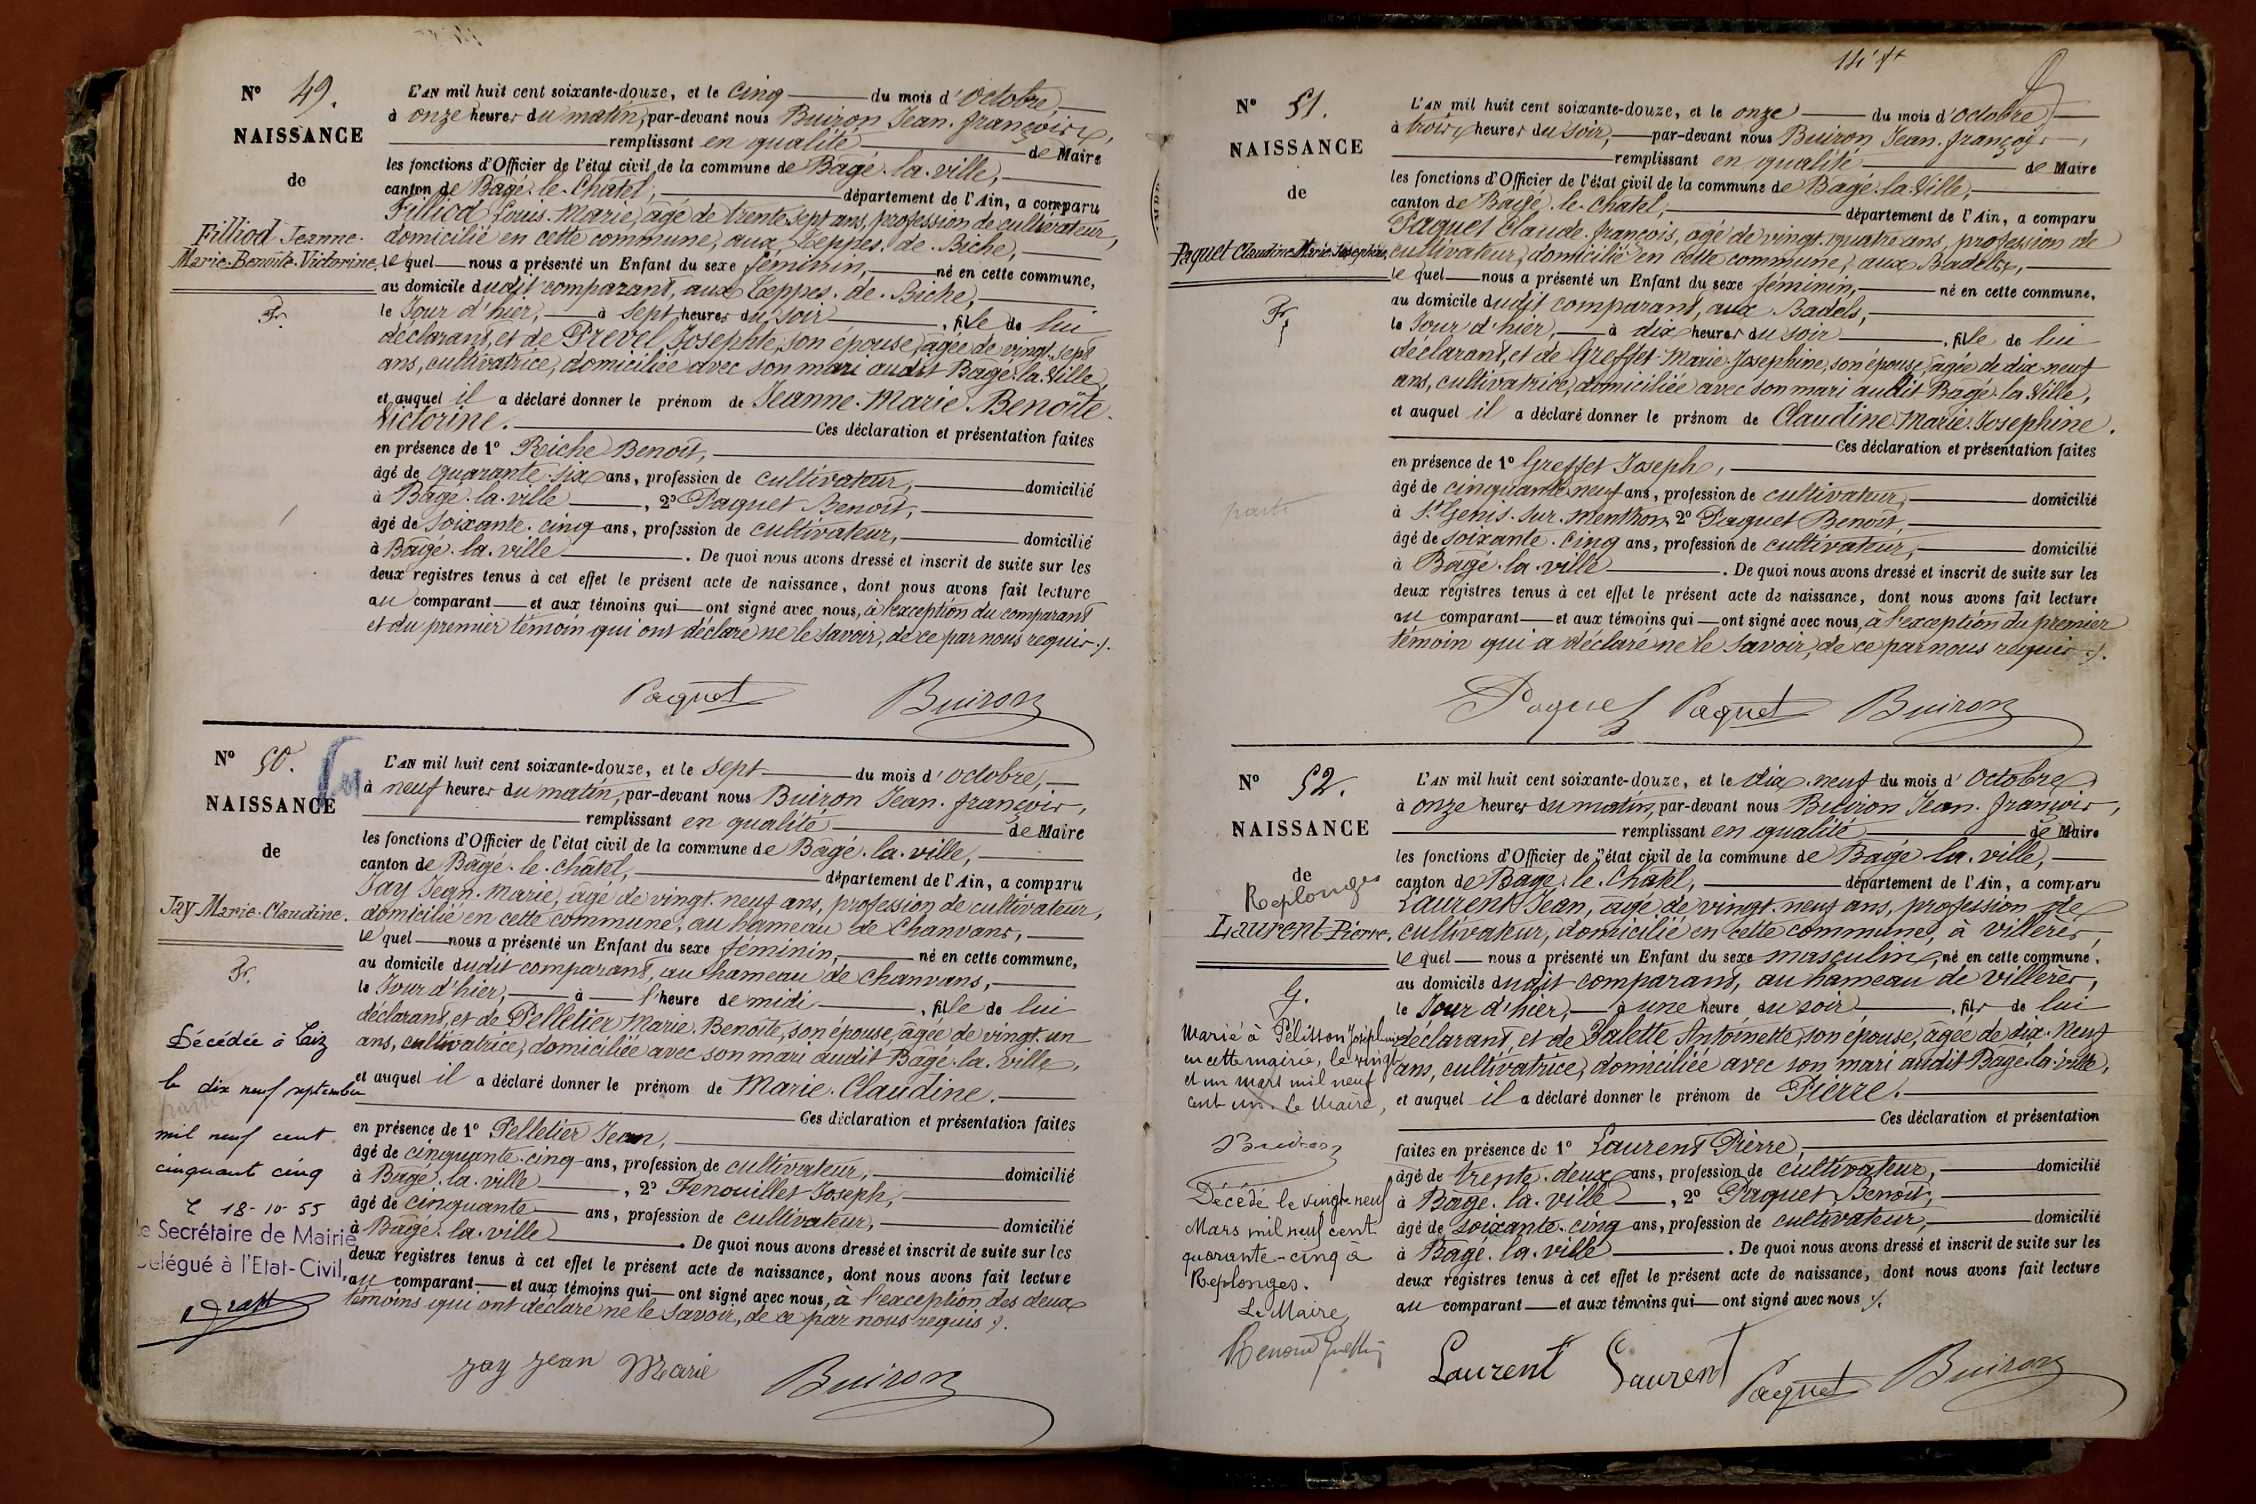 N° 49.
NAISSANCE
de
Filliod Jeanne.
Marie. Benoîte. Victorine.
Fr.
L'AN mil huit cent soixante-douze, et le cinq du mois d'Octobre,
à onze heures du matin, par-devant nous Buiron Jean. françois,
remplissant en qualité de Maire
les fonctions d'Officier de l'état civil de la commune de Bagé. la. ville,
canton de Bagé. le. Châtel, département de l'Ain, a comparu
Filliod Louis. Marie, âgé de trente sept ans, profession de cultivateur,
domicilié en cette commune, aux Teppes. de. Biche,
le quel nous a présenté un Enfant du sexe féminin, né en cette commune,
au domicile dudit comparant, aux Teppes. de. Biche,
le Jour d'hier, à sept heures du soir, fille de lui
déclarant, et de Prevel Josephte, son épouse, âgée de vingt. sept
ans, cultivatrice, domiciliée avec son mari audit Bagé. la. Ville,
et auquel il a déclaré donner le prénom de Jeanne. Marie. Benoîte.
Victorine. Ces déclaration et présentation faites
en présence de 1° Reiche Benoit,
âgé de quarante. six ans, profession de cultivateur, domicilié
à Bagé. la. ville, 2° Paquet Benoit,
âgé de soixante. cinq ans, profession de cultivateur, domicilié
à Bagé. la. ville. De quoi nous avons dressé et inscrit de suite sur les
deux registres tenus à cet effet le présent acte de naissance, dont nous avons fait lecture
au comparant et aux témoins qui ont signé avec nous, à l'exception du comparant
et du premier témoin qui ont déclaré ne le savoir, de ce par nous requis ./.
Paquet Buiron
N° 50.
NAISSANCE
de
Jay Marie. Claudine.
Fr.
Décédée à Laiz
le dix neuf septembre
mil neuf cent
cinquante cinq
18-10-55
Le Secrétaire de Mairie
Délégué à l'Etat-Civil,
L'AN mil huit cent soixante-douze, et le sept du mois d'octobre,
à neuf heures du matin, par-devant nous Buiron Jean. françois,
remplissant en qualité de Maire
les fonctions d'Officier de l'état civil de la commune de Bâgé. la. ville,
canton de Bagé. le. châtel, département de l'Ain, a comparu
Jay Jean. Marie, âgé de vingt. neuf ans, profession de cultivateur,
domicilié en cette commune, au hameau de Chanvans,
le quel nous a présenté un Enfant du sexe féminin, né en cette commune,
au domicile dudit comparant, au hameau de Chanvans,
le Jour d'hier, à l'heure de midi, fille de lui
déclarant, et de Pelletier Marie. Benoîte, son épouse, âgée de vingt. un
ans, cultivatrice, domiciliée avec son mari dudit Bagé. la. ville,
et auquel il a déclaré donner le prénom de Marie. Claudine.
Ces déclaration et présentation faites
en présence de 1° Pelletier Jean,
âgé de cinquante. cinq ans, profession de cultivateur, domicilié
à Bagé. la. ville, 2° Fenouillet Joseph,
âgé de cinquante ans, profession de cultivateur, domicilié
à Bagé. la. ville. De quoi nous avons dressé et inscrit de suite sur les
deux registres tenus à cet effet le présent acte de naissance, dont nous avons fait lecture
au comparant et aux témoins qui ont signé avec nous, à l'exception des deux
témoins qui ont déclaré ne le savoir, de ce par nous requis ./.
Jay Jean Marie Buiron
N° 51.
NAISSANCE
de
Paquet Claudine Marie Josephine.
Fr.
L'AN mil huit cent soixante-douze, et le onze du mois d'octobre,
à trois heures du soir, par-devant nous Buiron Jean. françois,
remplissant en qualité de Maire
les fonctions d'Officier de l'état civil de la commune de Bagé. la. Ville,
canton de Bâgé. le. Chatel, département de l'Ain, a comparu
Paquet Claude. françois, âgé de vingt. quatre ans, profession de
cultivateur, domicilié en cette commune, aux Badels,
le quel nous a présenté un Enfant du sexe féminin, né en cette commune,
au domicile dudit comparant, aux Badels,
le Jour d'hier, à dix heures du soir, fille de lui
déclarant, et de Greffet Marie. Josephine, son épouse, âgée de dix-neuf
ans, cultivatrice, domiciliée avec son mari audit Bagé. la. Ville,
et auquel il a déclaré donner le prénom de Claudine. Marie. Josephine.
Ces déclaration et présentation faites
en présence de 1° Greffet Joseph,
âgé de cinquante neuf ans, profession de cultivateur, domicilié
à St Genis. sur. Menthon, 2° Paquet Benoit,
âgé de soixante. cinq ans, profession de cultivateur, domicilié
à Bagé. la. ville. De quoi nous avons dressé et inscrit de suite sur les
deux registres tenus à cet effet le présent acte de naissance, dont nous avons fait lecture
au comparant et aux témoins qui ont signé avec nous, à l'exception du premier
témoin qui a déclaré ne le savoir, de ce par nous requis ./.
Paquet Paquet Buiron
N° 52.
NAISSANCE
de
Replonges
Laurent Pierre.
G.
Marié à Pélisson Josephine
en cette mairie, le vingt
et un mars mil neuf
cent un. Le Maire,
Buiron
Décédé le vingt-neuf
Mars mil neuf cent
quarante-cinq à
Replonges.
Le Maire
L'AN mil huit cent soixante-douze, et le dix. neuf du mois d'Octobre
à onze heures du matin, par-devant nous Buiron Jean. françois,
remplissant en qualité de Maire
les fonctions d'Officier de l'état civil de la commune de Bagé la. ville,
canton de Bagé. le. Châtel, département de l'Ain, a comparu
Laurent Jean, âgé de vingt. neuf ans, profession de
cultivateur, domicilié en cette commune, à villères,
le quel nous a présenté un Enfant du sexe masculin, né en cette commune,
au domicile dudit comparant, au hameau de villères,
le Jour d'hier, à une heure du soir, fils de lui
déclarant, et de Valette Antoinette, son épouse, âgée de dix. neuf
ans, cultivatrice, domiciliée avec son mari audit Bagé. la. ville,
et auquel il a déclaré donner le prénom de Pierre.
Ces déclaration et présentation
faites en présence de 1° Laurent Pierre,
âgé de trente. deux ans, profession de cultivateur, domicilié
à Bâgé. la. ville, 2° Paquet Benoit,
âgé de soixante. cinq ans, profession de cultivateur, domicilié
à Bagé. la. ville. De quoi nous avons dressé et inscrit de suite sur les
deux registres tenus à cet effet le présent acte de naissance, dont nous avons fait lecture
au comparant et aux témoins qui ont signé avec nous ./.
Laurent Laurent Paquet Buiron